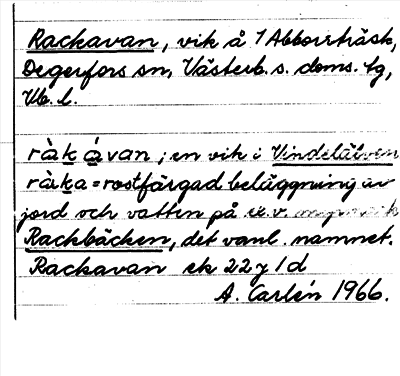 Rackavan, vik å 1 Abborrträsk,
Degerfors sn, Västerb. s. doms. hg,
Vb. l.
ràk ávan ; en vik i Vindelälven
ràka = rostfärgad beläggning av
jord och vatten på
Rackbäcken, det vanl. namnet.
Rackavan ek 22 y 1 d
A. Carlén 1966.